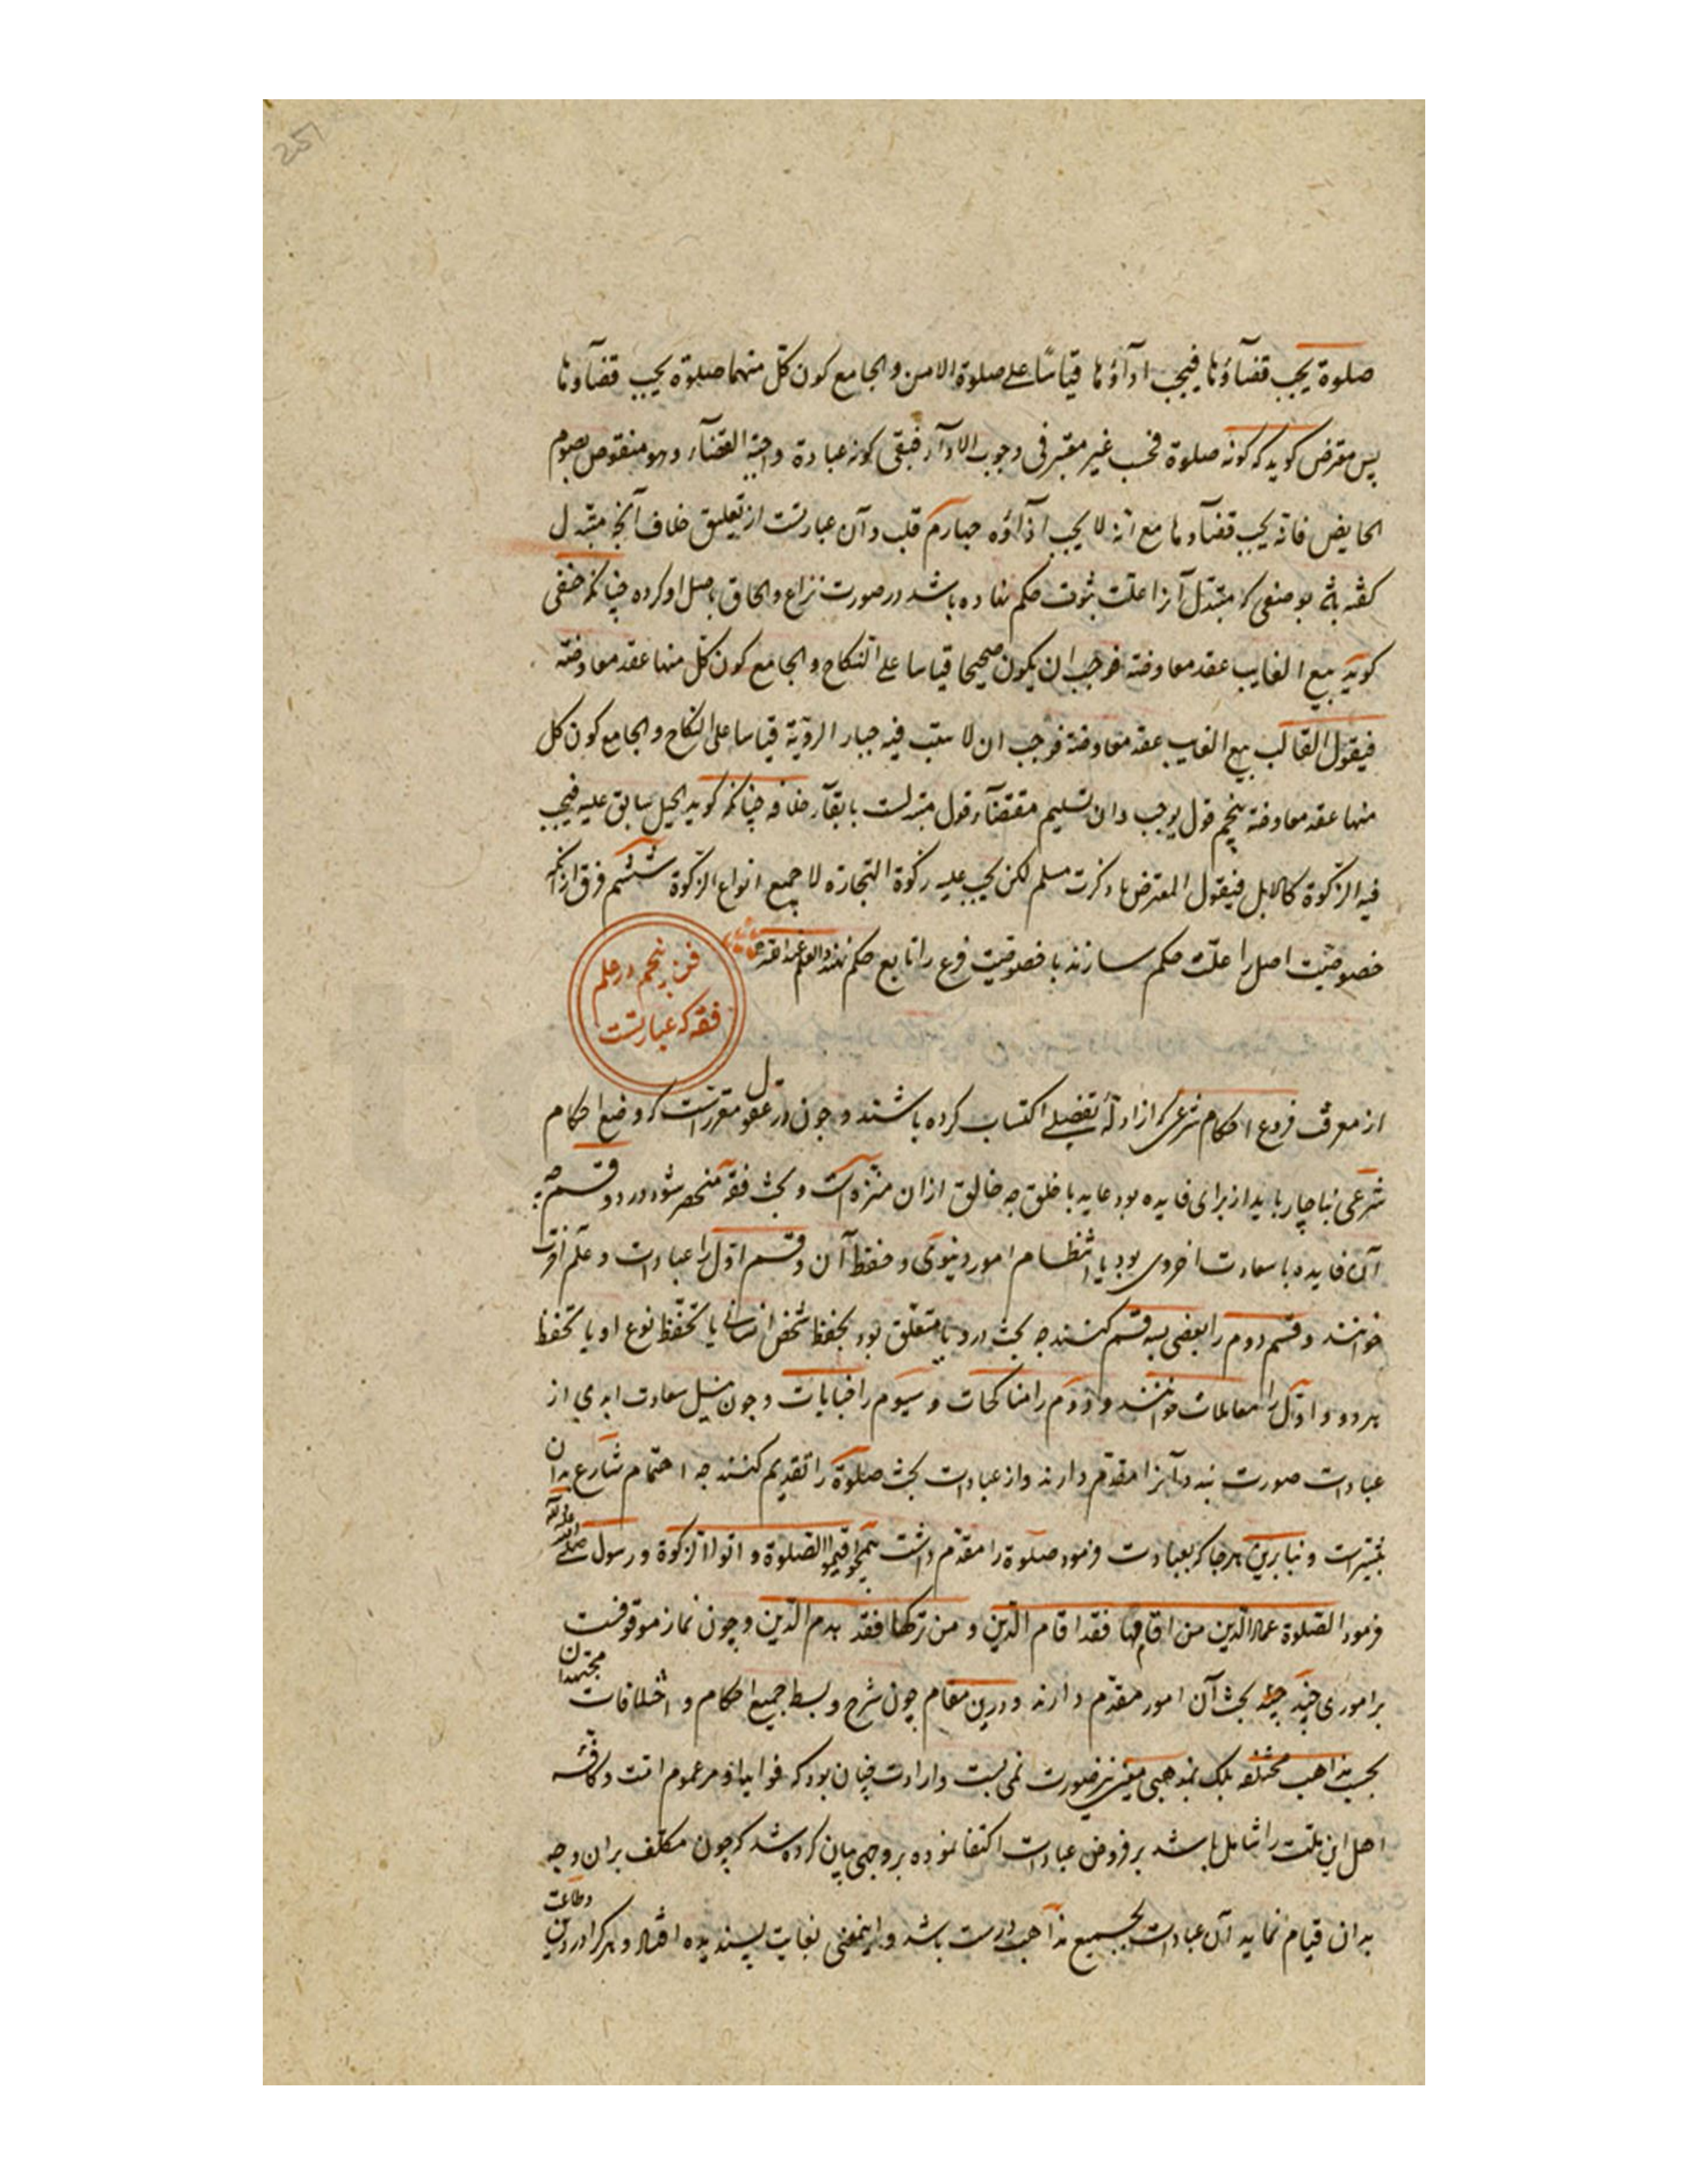 صلوة یجب قضاؤها فیجب اداؤها قیاسًا علی صلوة الامن والجامع کون کلّ منهما صلوة یجب قضاؤها
پس معترض کوید که کونه صلوة فحسب غیر معتبر فی وجوب الادآء فبقی کونه عبادة واجبة القضآء وهو منقوض بصوم
الحایض فانه یجب قضاوها مع انه لا یجب اداؤه جهارم قلب وآن عبارتست از تعلیق خلاف آنچه مستدل
کفته باشد بوصفی که مستدل آنرا علت ثبوت حکم نهاده باشد در صورت نزاع والحاق باصل او کرده چنانکه حنفی
کوید بیع الغایب عقد معاوضة فوجب ان یکون صحیحا قیاسا علی النکاح والجامع کون کل منهما عقد معاوضة
فیقول القالب بیع الغایب عقد معاوضة فوجب ان لا یثبت فیه خیار الرؤیة قیاسا علی النکاح والجامع کون کل
منهما عقد معاوضة پنجم قول بموجب وآن تسلیم مقتضآء قول مستدلست با بقآء خلاف چنانکه کوید الخیل یسابق علیه فیجب
فیه الزکوة کالابل فیقول المعترض ما ذکرت مسلم لکن یجب علیه زکوة التجارة لا جمیع انواع الزکوة ششم فرق از آنکه
خصوصیّت اصل را علّت حکم سازند یا خصوصیّت فرع را مانع حکم نهند والعلم عند الله
فن پنجم در علم
فقه که عبارتست
از معرفت فروع احکام شرعی که از ادلّهٔ تفضیلے اکتساب کرده باشند و چون در عقول مقررست که وضع احکام
شرعی بناچار باید از برای فایده بود عاید با خلق چه خالق ازان منزه است و بحث فقه منحصر شود در دو قسم چه
آن فایده یا سعادت اخروی بود یا انتظام امور دنیوی و حفظ آن و قسم اوّل را عبادات و علم آخرت
خوانند و قسم دوم را بعضی بسه قسم کنند چه بحث درو یا متعلّق بود بحفظ شخص انسانی یا بحفظ نوع او یا بحفظ
هر دو و اوّل را معاملات خوانند و دوم را مناکحات و سیوم را جنایات و چون نیل سعادت ابدی از
عبادات صورت بندد آنرا مقدّم دارند و از عبادات بحث صلوة را تقدیم کنند چه اهتمام شارع بدان
بیشترست و بنابرین هرجا که بعبادت فرمود صلوة را مقدّم داشت نحو اقیموا الصلوة و اتوا الزکوة و رسول صلی الله علیه وآله
فرمود الصلوة عماد الدین من اقامها فقد اقام الدین و من ترکها فقد هدم الدین و چون نماز موقوفست
بر اموری چند بحث آن امور مقدّم دارند و درین مقام چون شرح و بسط جمیع احکام و اختلافات مجتهدان
بحسب مذاهب مختلفه بلک بمذهبی معین نیز صورت نمی بست و ارادت چنان بود که فواید او مر عموم امت و کافّهٔ
اهل این ملّت را شامل باشد بر فروض عبادات اکتفا نموده بر وجهی بیان کرده شد که چون مکلف بران وجه
بدان قیام نماید آن عبادت بجمیع مذاهب درست باشد و اینمعنی بغایت پسندیده افتاد و هر کرا در دین وطاعت